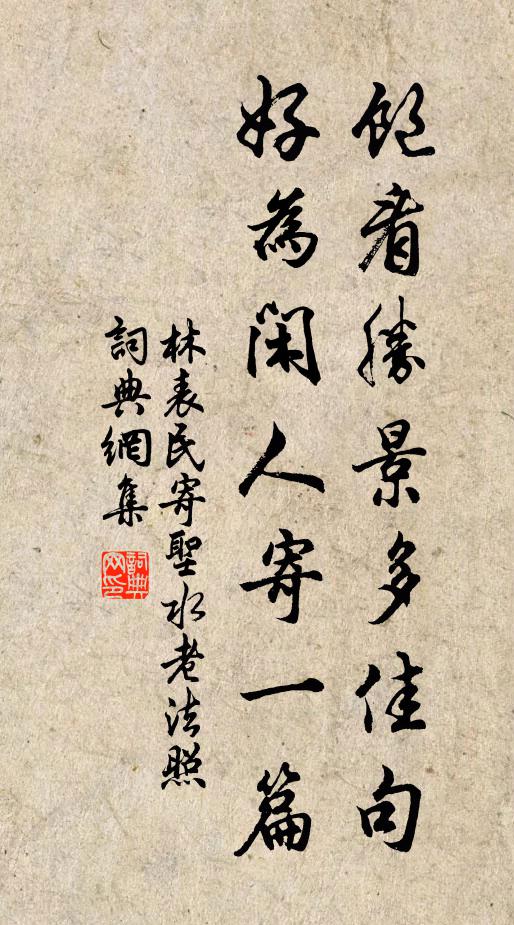 飽看勝景多佳句
好為閑人寄一篇
林表民寄聖水老法照
詞典網集
詞典網印